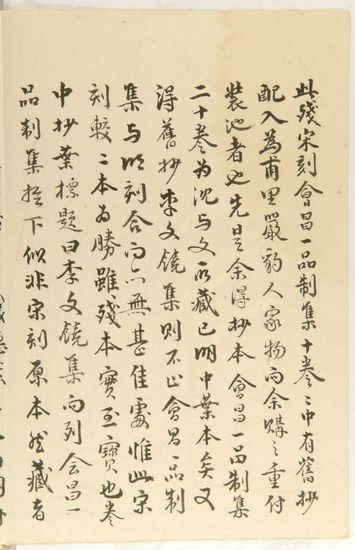 此殘宋刻會昌一品制集十卷〻中有舊抄
配入為甫里嚴豹人家物而余購之重付
裝池者也先是余得抄本會昌一品制集
二十卷为沈与文所藏已明中葉本矣又
得舊抄李文饒集則不止會昌一品制
集与明刻合而亦無甚佳處惟此宋
刻較二本为勝雖殘本實至寶也卷
中抄葉標題曰李文饒集而列会昌一
品制集於下似非宋刻原本然藏者